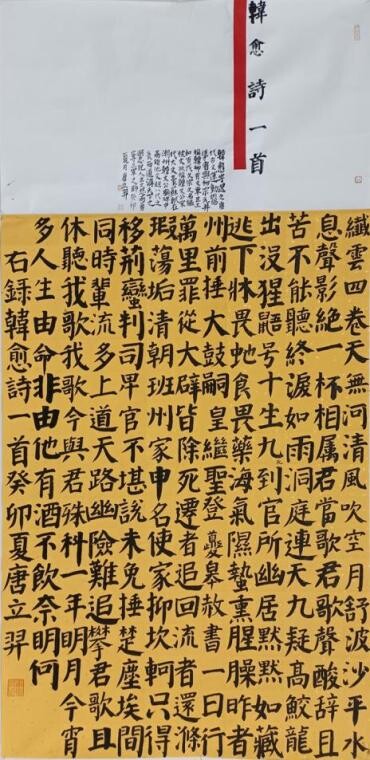 韓愈詩一首
纖雲四卷天無河清風吹空月舒波沙平水
息聲影絕一杯相属君當歌君歌聲酸辭且
苦不能聽終淚如雨洞庭連天九疑高鮫龍
出没猩鼯号十生九到官所幽居默默如藏
逃下牀畏虵食畏藥海氣隰蟄熏腥臊昨者
州前捶大鼓嗣皇繼聖登夔皋赦書一日行
萬里罪從大辟皆除死遷者追回流者還滌
瑕蕩垢清朝班州家申名使家抑坎軻只得
移荊蠻判司卑官不堪說未免捶楚塵埃間
同時輩流多上道天路幽險難追攀君歌且
休聽我歌我歌今與君殊科一年明月今宵
多人生由命非由他有酒不飲奈明何
右錄韓愈詩一首癸卯夏唐立羿